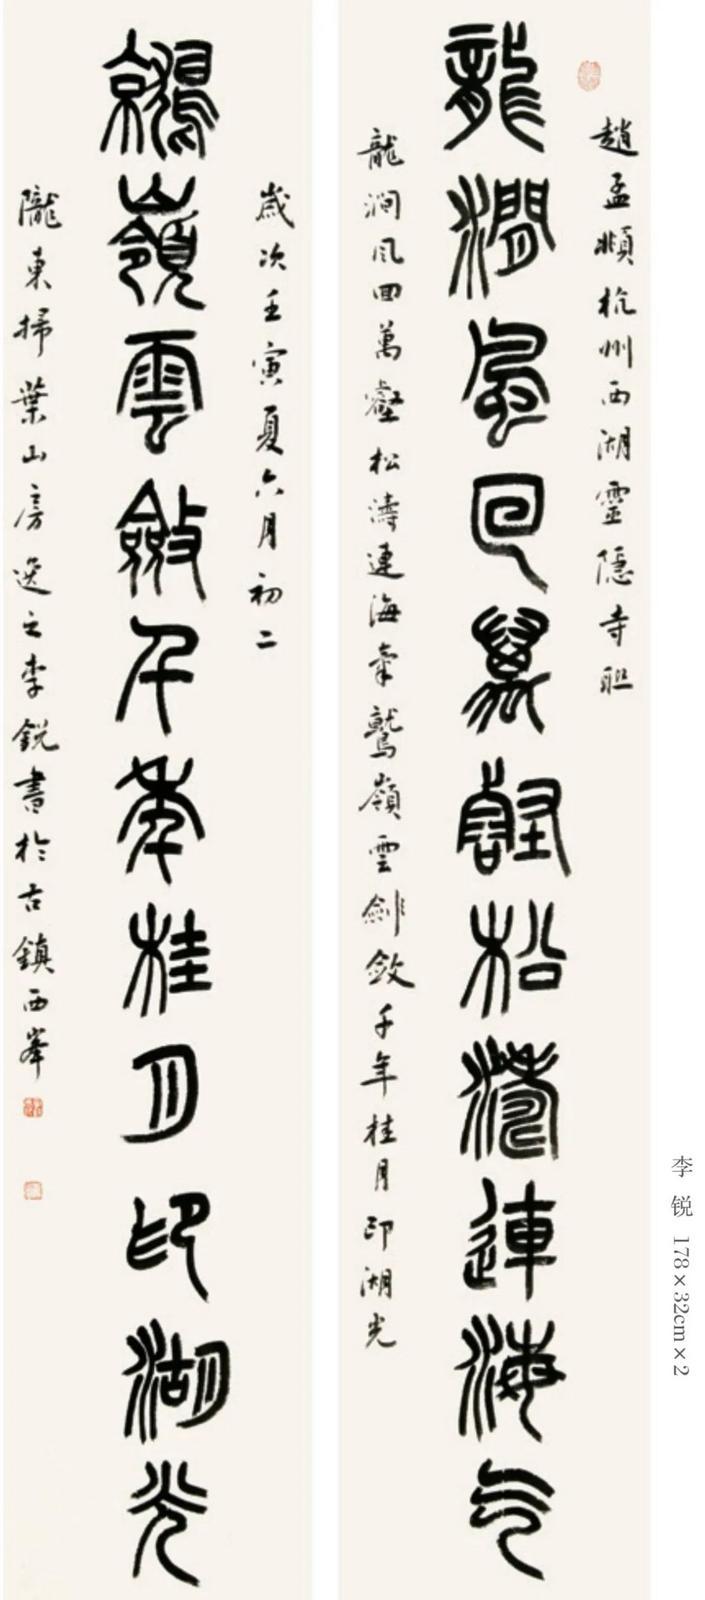 趙孟頫杭州西湖靈隱寺聯
龍澗風回萬壑松濤連海氣
龍澗風回萬壑松濤連海氣鷲嶺雲劍斂千年桂月印湖光
歲次壬寅夏六月初二
鷲嶺雲斂千年桂月印湖光
隴東掃葉山房逸之李銳書於古鎮西峯
李锐 178×32cm×2